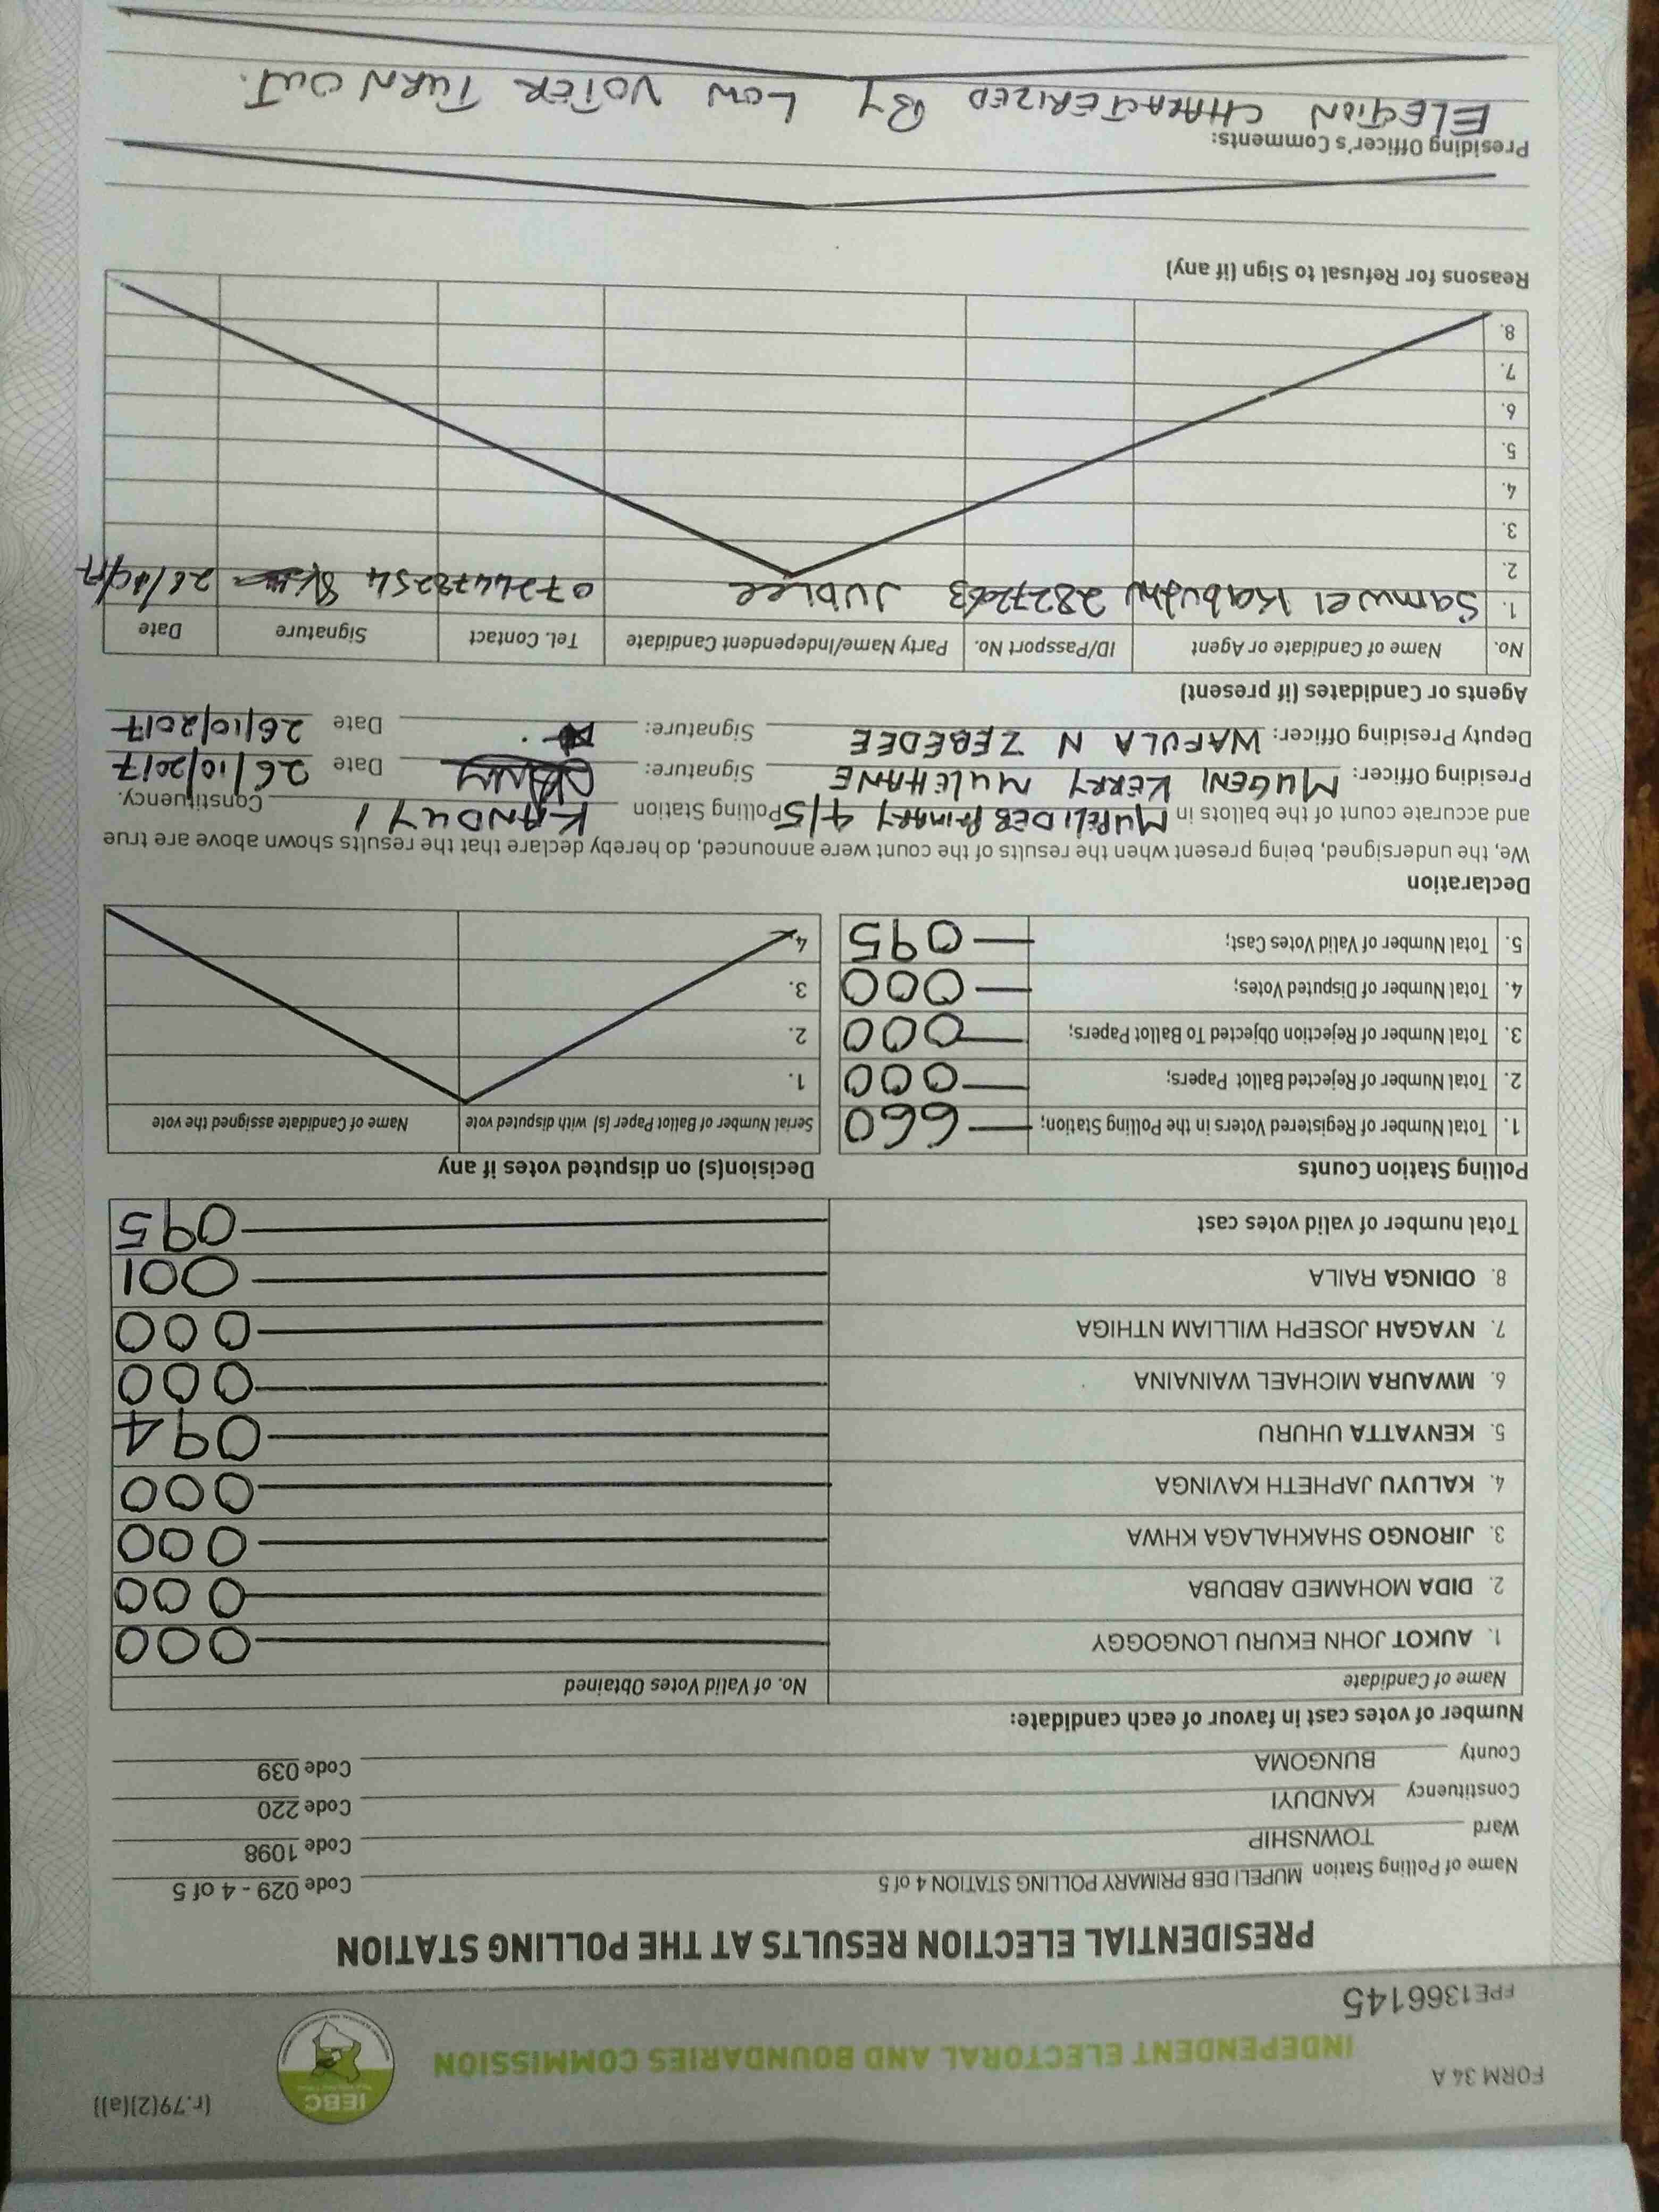 FORM 34 A
(r.79(2)(a))
INDEPENDENT ELECTORAL AND BOUNDARIES COMMISSION
IEBC
FPE1366145
PRESIDENTIAL ELECTION RESULTS AT THE POLLING STATION
Name of Polling Station MUPELI DEB PRIMARY POLLING STATION 4 of 5 Code 029 - 4 of 5
Ward TOWNSHIP Code 1098
Constituency KANDUYI Code 220
County BUNGOMA Code 039
Number of votes cast in favour of each candidate:
Name of Candidate No. of Valid Votes Obtained
1. AUKOT JOHN EKURU LONGOGGY 000
2. DIDA MOHAMED ABDUBA 000
3. JIRONGO SHAKHALAGA KHWA 000
4. KALUYU JAPHETH KAVINGA 000
5. KENYATTA UHURU 094
6. MWAURA MICHAEL WAINAINA 000
7. NYAGAH JOSEPH WILLIAM NTHIGA 000
8. ODINGA RAILA 001
Total number of valid votes cast 095
Polling Station Counts
1. Total Number of Registered Voters in the Polling Station; 660
2. Total Number of Rejected Ballot Papers; 000
3. Total Number of Rejection Objected To Ballot Papers; 000
4. Total Number of Disputed Votes; 000
5. Total Number of Valid Votes Cast; 095
Decision(s) on disputed votes if any
Serial Number of Ballot Paper (s) with disputed vote Name of Candidate assigned the vote
1.
2.
3.
4.
Declaration
We, the undersigned, being present when the results of the count were announced, do hereby declare that the results shown above are true
and accurate count of the ballots in MUPELI DEB PRIMARY 4/5 Polling Station KANDUYI Constituency.
Presiding Officer: MUGENI KERRY MULEHANE Signature: Date 26/10/2017
Deputy Presiding Officer: WAFULA N ZEBEDEE Signature: Date 26/10/2017
Agents or Candidates (if present)
No. Name of Candidate or Agent ID/Passport No. Party Name/Independent Candidate Tel. Contact Signature Date
1. Samwel JUBLEE 26/10/17
2.
3.
4.
5.
6.
7.
8.
Reasons for Refusal to Sign (if any)
Presiding Officer's Comments:
ELECTION CHARACTERIZED BY LOW VOTER TURN OUT.